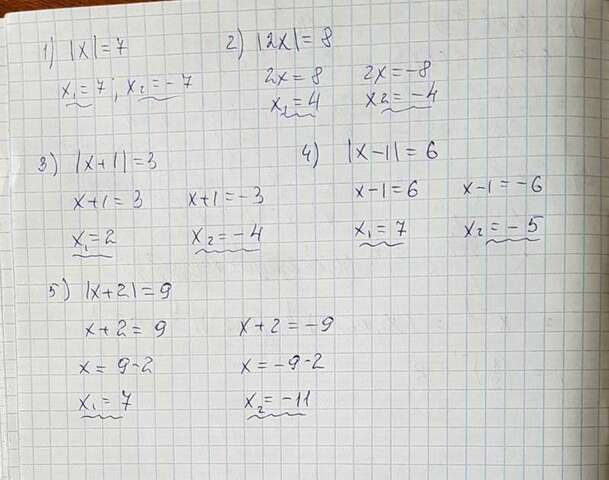 1) |x|=7
x₁=7; x₂=-7
2) |2x|=8
2x=8 2x=-8
x₁=4 x2=-4
3) |x+1|=3
x+1=3 x+1=-3
x₁=2 x₂=-4
4) |x-1|=6
x-1=6 x-1=-6
x₁=7 x₂=-5
5) |x+2|=9
x+2=9 x+2=-9
x=9-2 x=-9-2
x₁=7 x₂=-11